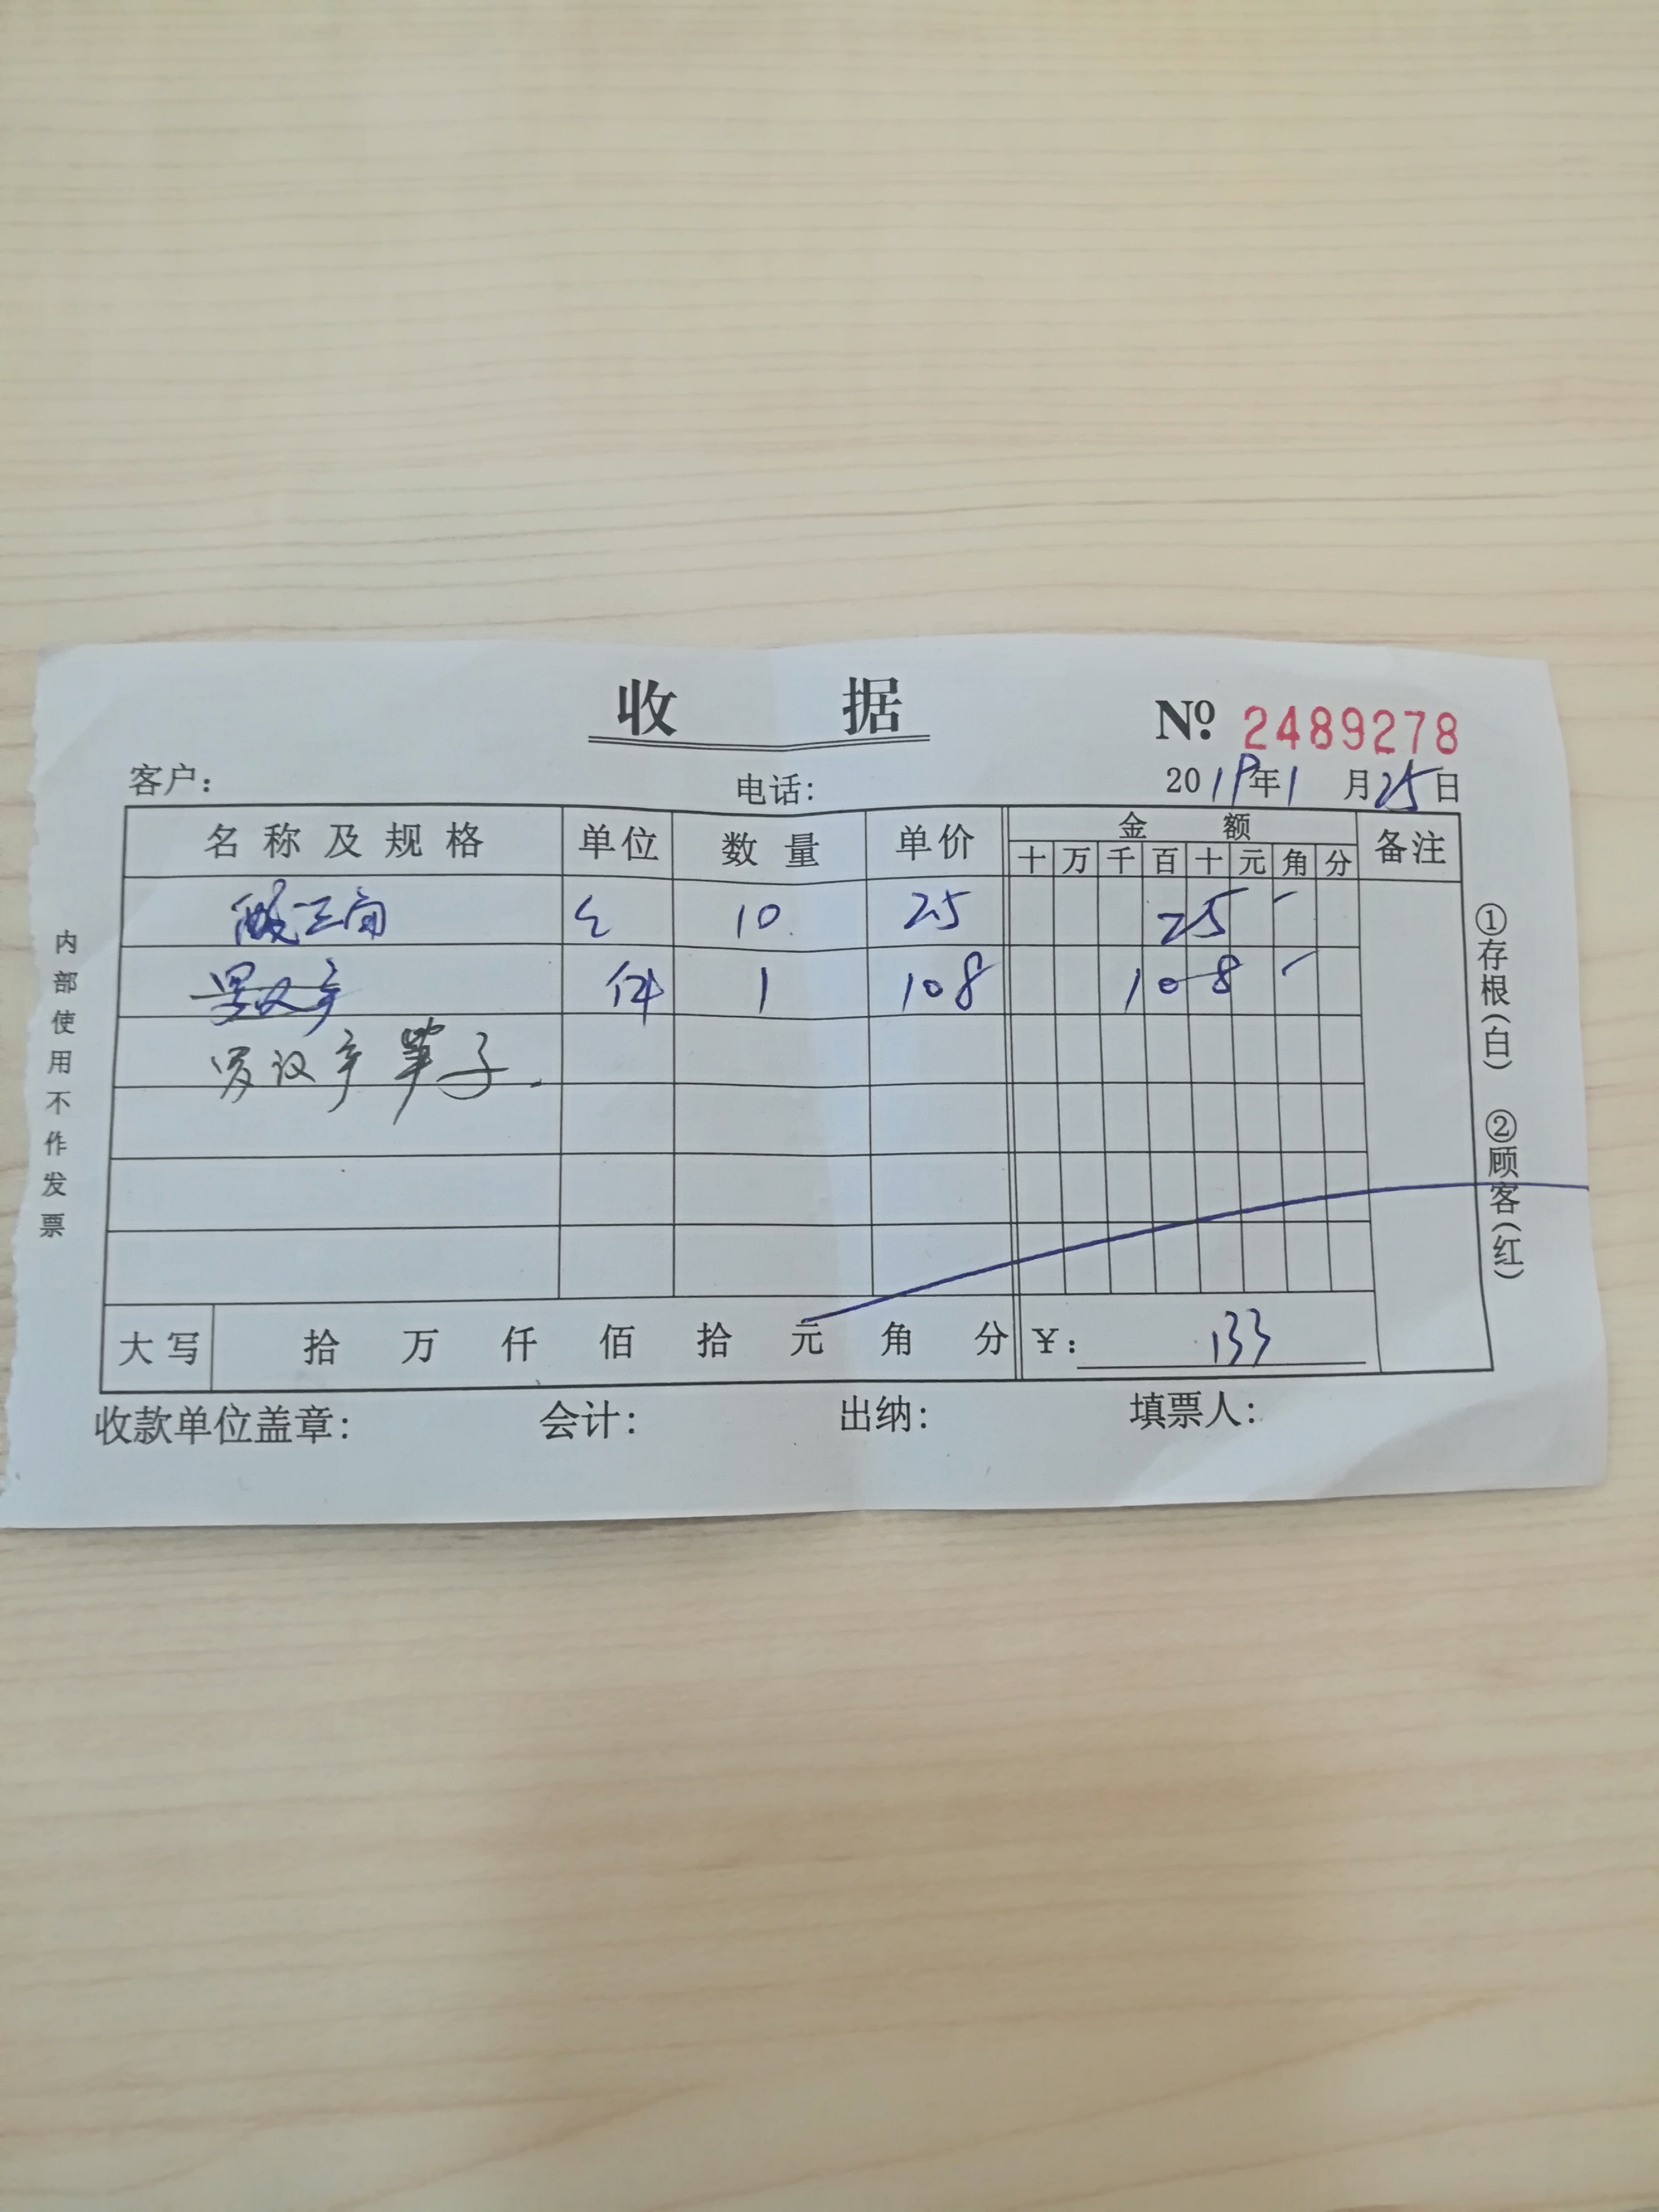 收 据
№ 2489278
客户： 电话： 2019年1月25日
名称及规格 单位 数量 单价 金额 备注
十 万 千 百 十 元 角 分
10 25 25
件 1 108 108
罗汉 笋子
大写 拾 万 仟 佰 拾 元 角 分 ¥：133
收款单位盖章： 会计： 出纳： 填票人：
内部使用不作发票
①存根(白) ②顾客(红)